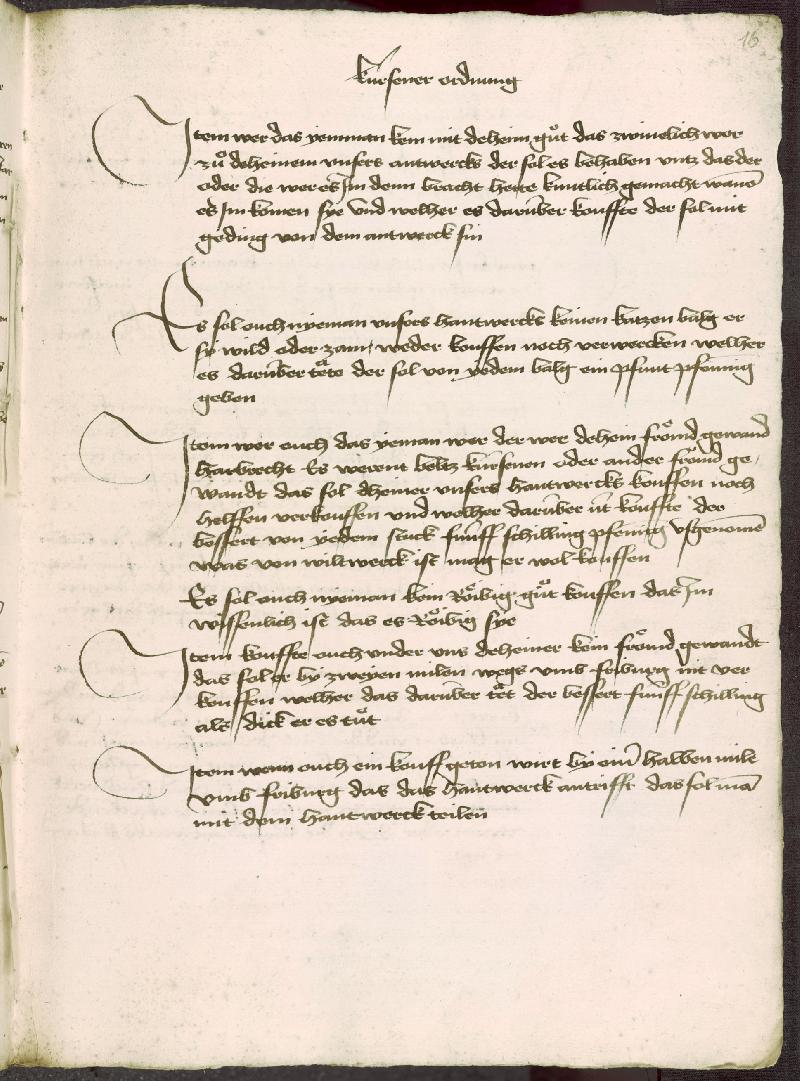 16
kürsener ordnung
Item wer das yemman kem mit deheim guͦt das zwiuelich wer
zuͦ deheinem unsers antwercks der sol es behaben untz das der
oder die wer es Im denn bracht hette kuntlich gemacht wannē
es Im komen sye Und welher es darüber kouffte der sol mit
geding von dem antwerck sin
Es sol ouch nyeman unsers hantwercks keinen katzen balg er
sy wild oder zam, weder kouffen noch verwercken welher
es darüber tête der sol von yedem balg ein pfunt pfenning
geben
Item wer ouch das yeman wer der wer dehein froͤmd gewand
harbrecht Es werent beltz kürsenen oder ander froͤmd ge,
wandt das sol dheiner unsers hantwercks kouffen noch
helffen verkouffen und welher darüber üt kouffte der
bessert von yedem stuck fünff schilling pfening vsgenomē
was von wiltwerck ist mag er wol kouffen
Es sol ouch nyeman kein Roͤibig guͦt kouffen das Im
wissenlich ist das es Roͤibig sye
Item kouffte ouch under uns deheiner kein froͤmd gewandt
das sol er by zweyen milen wegs umb friburg nit ver
kouffen welher das darüber tet der bessert fünff schilling
als dick er es tuͦt
Item wenn ouch ein kouff geton wirt by eim halben mile
umb friburg das das hantwerck antrifft das sol mā
mit dem hantwerck teilen